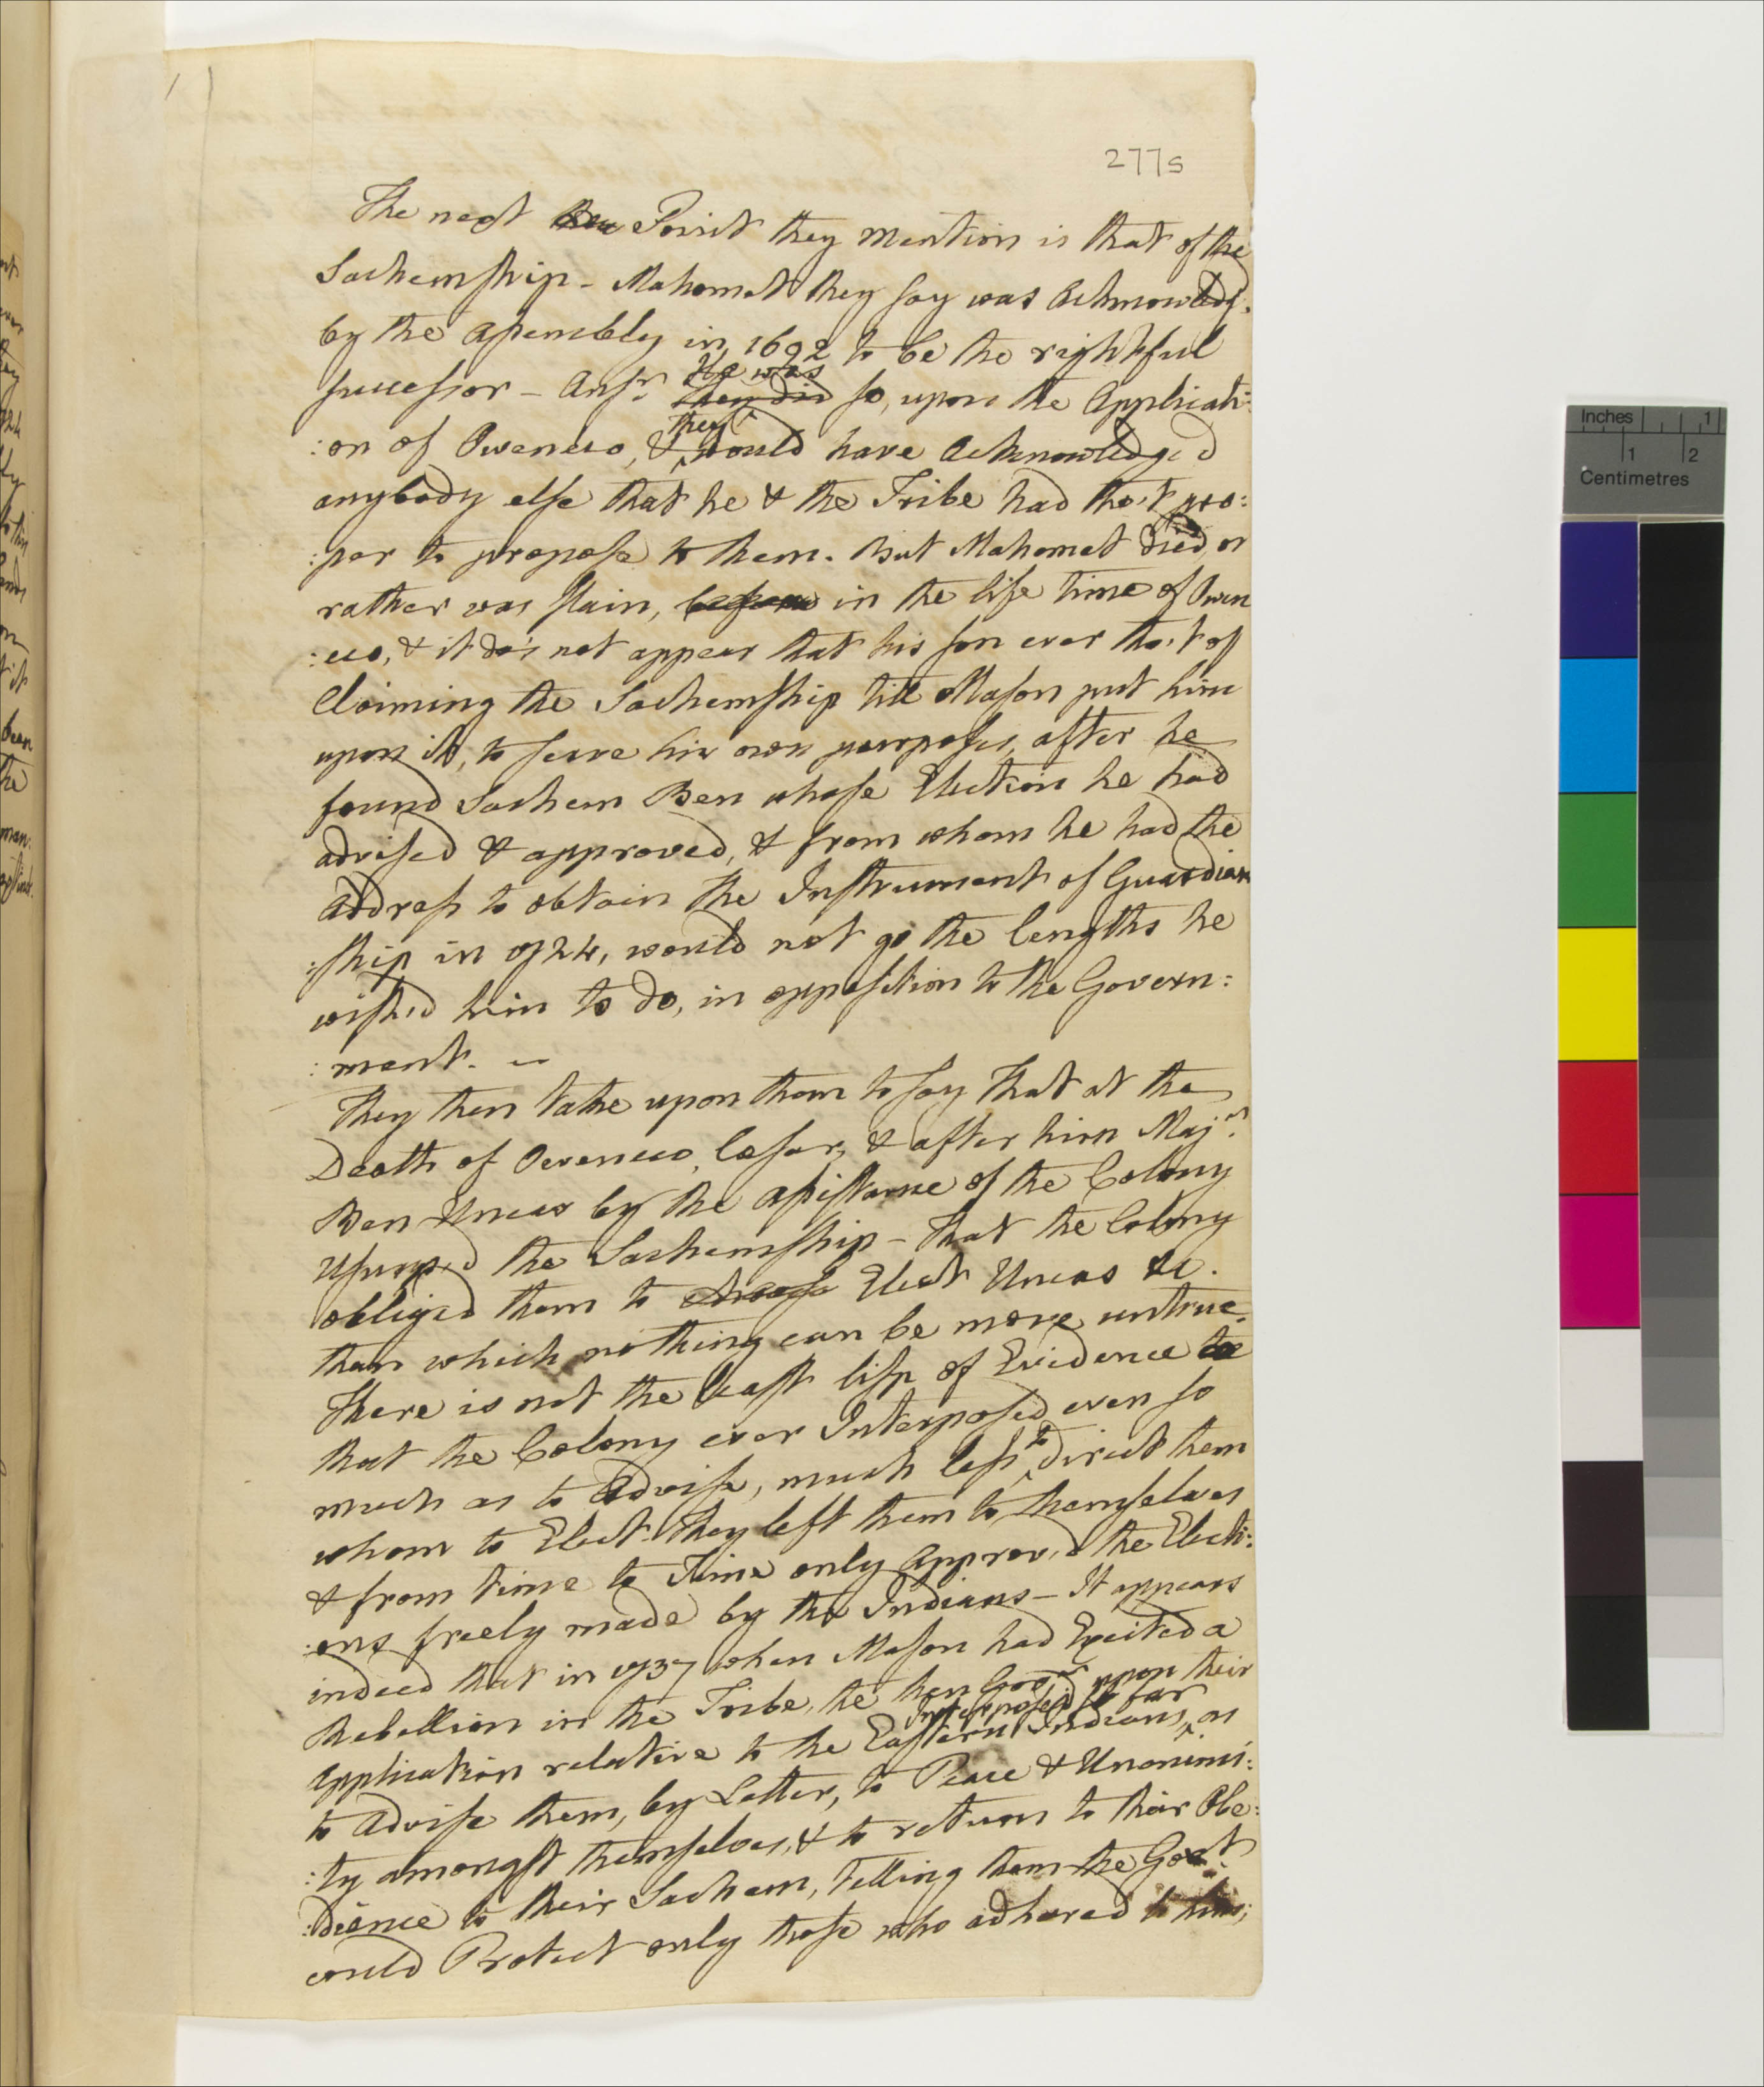 277s
The next Point they mention is that of the
Sachemship - Mahomet they say was Acknowledg.
by the Assembly in 1692 to be the rightfull
successor - Ansr. He was they did so, upon the Applicati:
:on of Oweneco, & they would have Acknowledged
anybody else that he & the Tribe had tho't pro:
:per to propose to them. But Mahomet died, or
rather was slain, before in the life time of Owen
:eco, & it do's not appear that his son ever tho't of
Claiming the Sachemship till Mason put him
upon it, to serve his own purposes, after he
found Sachem Ben whose Election he had
advised & approved, & from whom he had the
address to obtain the Instrument of Guardian
:ship in 1724, would not go the lengths he
wished him to do, in opposition to the Govern:
:ment.
They then take upon them to say That at the
Death of Oweneco, Cesar, & after him Majr.
Ben Uncas by the assistance of the Colony
Usurped the Sachemship - That the Colony
obliged them to choose Elect Uncas &c.
than which nothing can be more untrue.
There is not the least lisp of Evidence
that the Colony ever Interposed even so
much as to advise, much less to direct them
whom to Elect. They left them to themselves
& from time to Time only approv'd the Electi:
:ons freely made by the Indians - It appears
indeed that in 1737 when Mason had Excited a
Rebellion in the Tribe, the then Govr. upon their
application relative to the Eastern Indians, Interposed so far as
to advise them, by Letter, to Peace & Unanimi:
:ty amongst themselves, & to return to their Obe:
:dience to their Sachem, telling them the Govt.
could Protect only those who adhered to him;
Inches 1
1 2
Centimetres